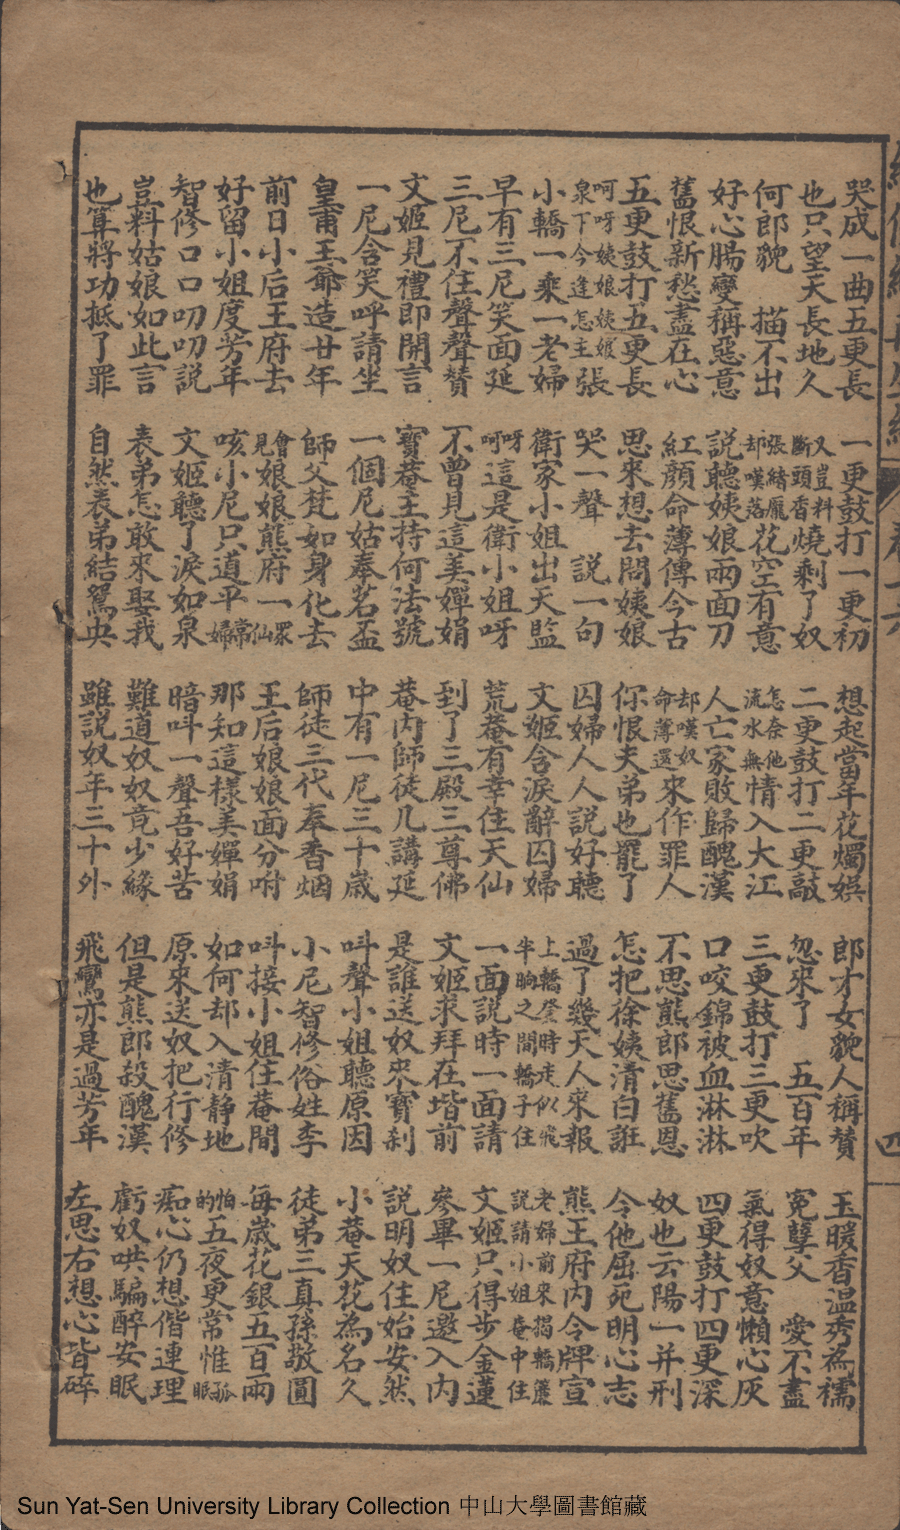 哭成一曲五更長 一更鼓打一更初 想起當年花燭娛 郎才女貌人稱贊 玉暖香溫秀為襦
也只望天長地久 又豈料斷頭香燒剩了奴 二更鼓打二更敲 忽來了 五百年 冤孽父 愛不盡
何郎貌 描不出 張緒風却嘆落花空有意 怎奈他流水無情入大江 三更鼓打三更吹 氣得奴意懶心灰
好心腸變稱惡意 說聽姨娘兩面刀 人亡家敗歸醜漢 口咬錦被血淋淋 四更鼓打四更深
舊恨新愁盡在心 紅顏命薄傳今古 却嘆奴命薄還來作罪人 不思熊郎思舊恩 奴也云陽一并刑
五更鼓打五更長 思來想去問姨娘 你恨夫弟也罷了 怎把徐姨清白誑 令他屈死明心志
呵呀姨娘姨娘泉下今逢怎主張 哭一聲 說一句 囚婦人人說好聽 過了幾天人來報 熊王府內令牌宣
小轎一乘一老婦 衛家小姐出天監 文姬含淚辭囚婦 上轎登時走似飛半晌之間轎子住 老婦前來揭轎簾說請小姐庵中住
早有三尼笑面延 呀呵這是衛小姐呀 荒菴有幸住天仙 一面說時一面請 文姬只得步金蓮
三尼不住聲聲贊 不曾見這美嬋娟 到了三殿三尊佛 文姬求拜在堦前 參畢一尼邀入內
文姬見禮即開言 寶菴主持何法號 菴內師徒几講延 是誰送奴來寶刹 說明奴住始安然
一尼含笑呼請坐 一個尼姑奉茗盃 中有一尼三十歲 呌聲小姐聽原因 小菴天花為名久
皇甫王爺造廿年 師父梵如身化去 師徒三代奉香烟 小尼智修俗姓李 徒弟三真孫敬圓
前日小后王府去 會見娘娘熊府一眾仙 王后娘娘面分咐 呌接小姐住菴間 每歲花銀五百兩
好留小姐度芳年 咳小尼只道平常婦 那知這樣美嬋娟 如何却入清静地 怕的五夜更常惟孤眠
智修口口叨叨說 文姬聽了淚如泉 暗呌一聲吾好苦 原來送奴把行修 痴心仍想偕連理
豈料姑娘如此言 表弟怎敢來娶我 難道奴奴竟少緣 但是熊郎殺醜漢 虧奴哄騙醉安眠
也算將功抵了罪 自然表弟結鴛央 雖說奴年三十外 飛鸞亦是過芳年 左思右想心皆碎
四
Sun Yat-Sen University Library Collection 中山大學圖書館藏